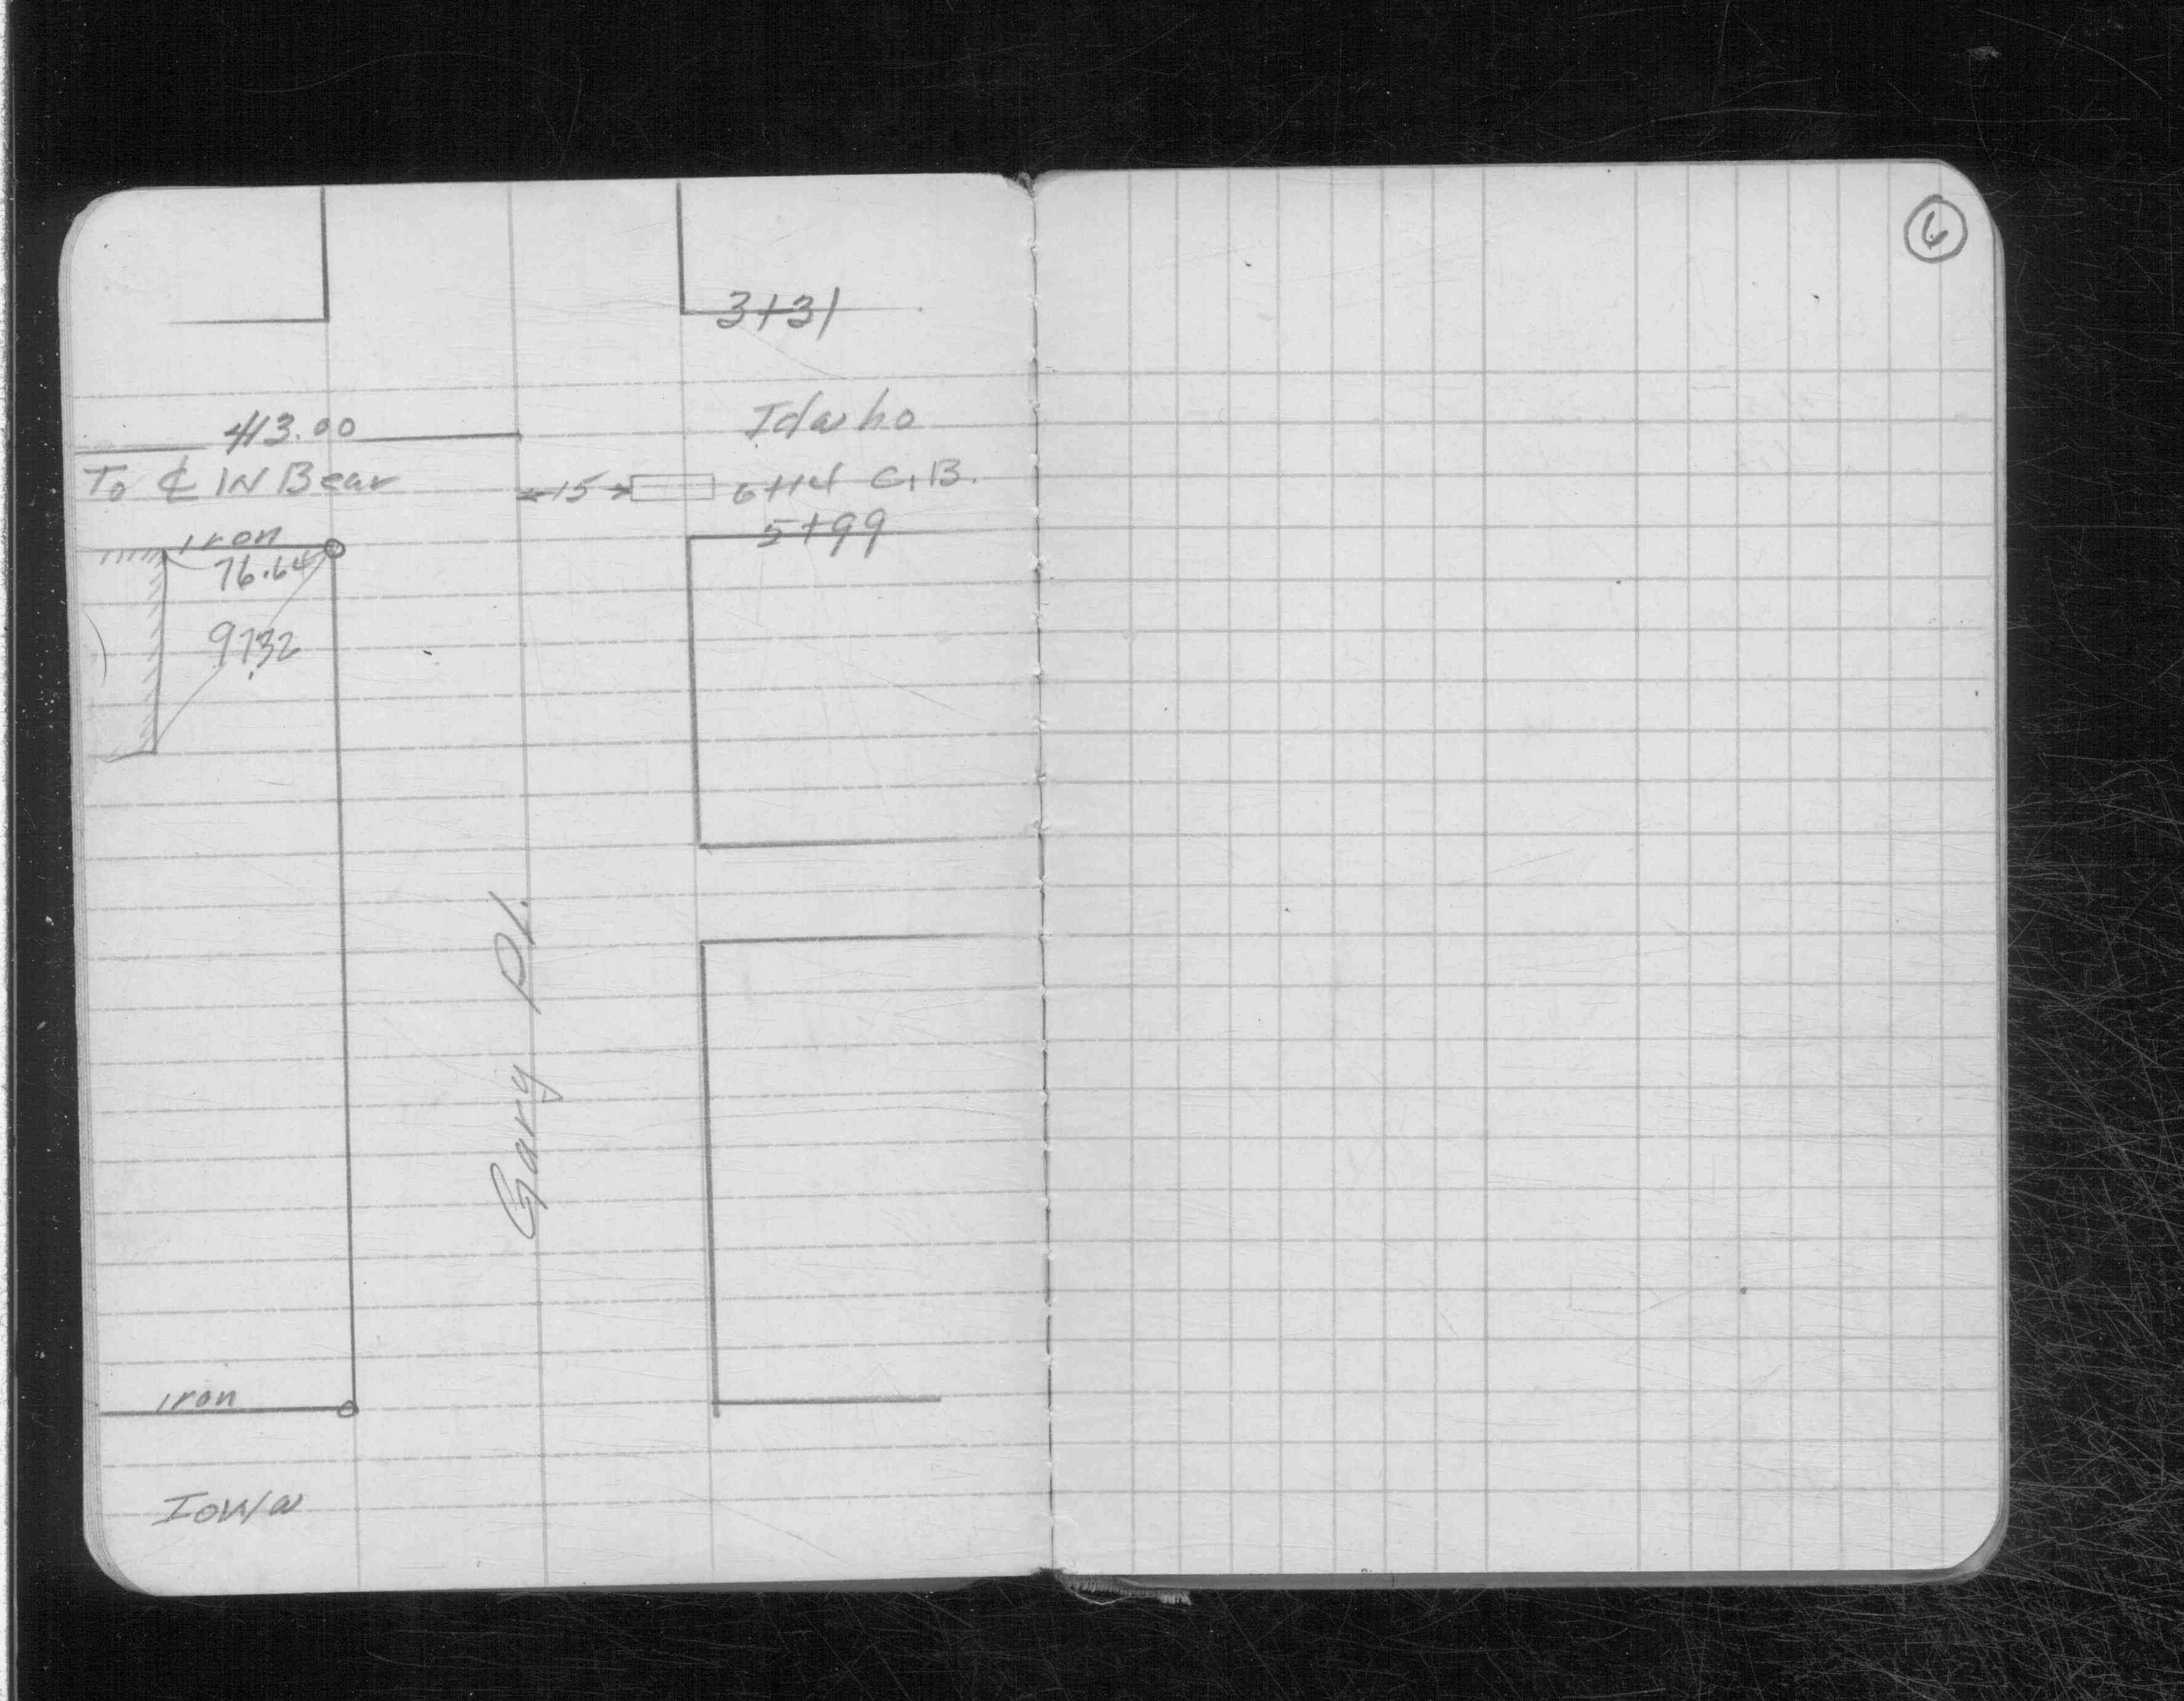 6
3+31
413.00
Idaho
To ℄ IN Bear
15
6+14 C.B.
iron
5+99
76.64
97.32
Gary Pl.
iron
Iowa